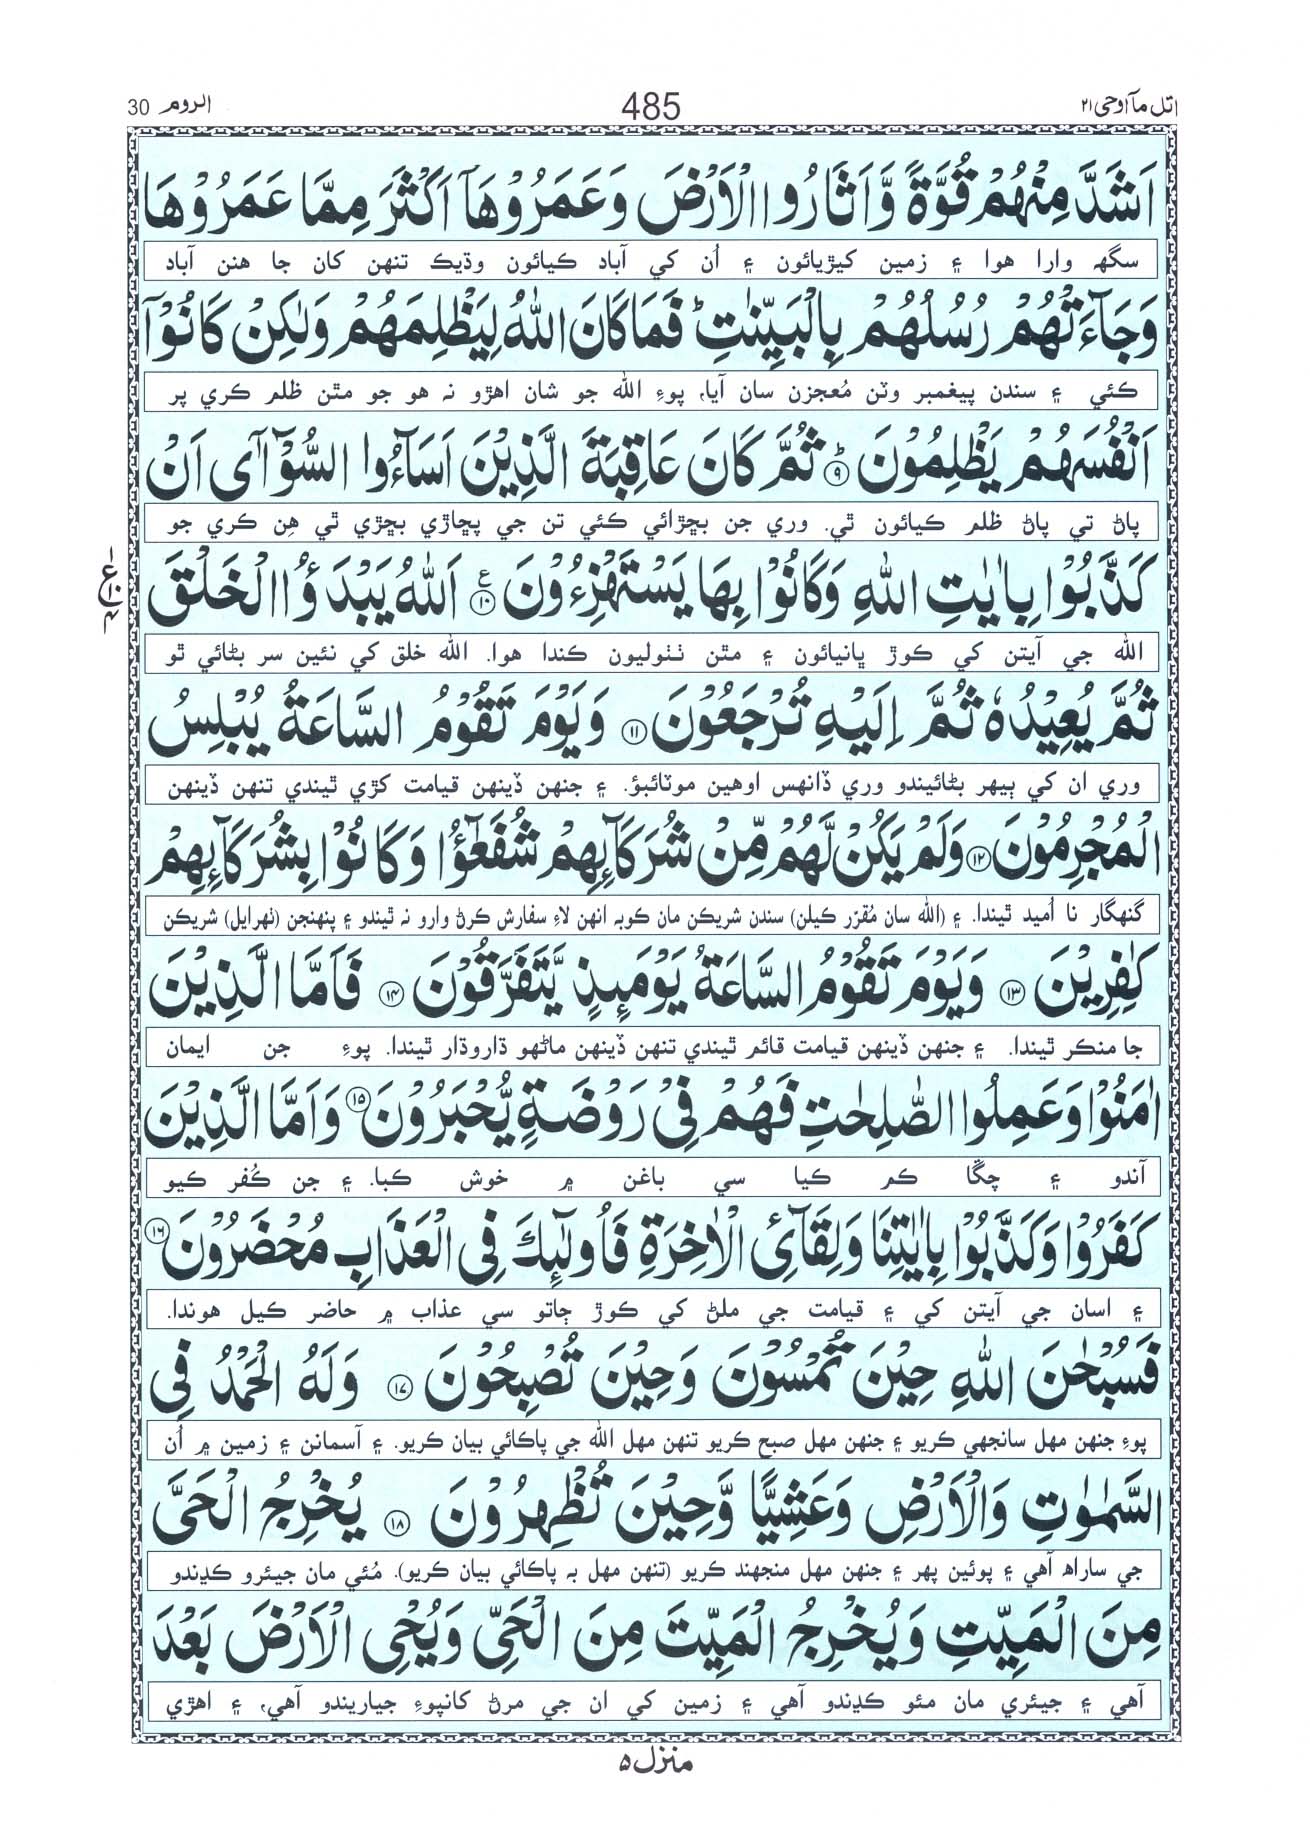 اتل مآ اوحی ۲۱
485
الروم 30
اَشَدَّ مِنْهُمْ قُوَّةً وَّاَثَارُوا الْاَرْضَ وَعَمَرُوْهَاۤ اَكْثَرَ مِمَّا عَمَرُوْهَا
سگهہ وارا هوا ۽ زمين کيڙيائون ۽ اُن کي آباد ڪيائون وڌيڪ تنهن کان جا هنن آباد
وَجَآءَتْهُمْ رُسُلُهُمْ بِالْبَيِّنٰتِ ؕ فَمَا كَانَ اللّٰهُ لِيَظْلِمَهُمْ وَلٰكِنْ كَانُوْۤا
ڪئي ۽ سندن پيغمبر وٽن مُعجزن سان آيا، پوءِ الله جو شان اهڙو نہ هو جو مٿن ظلم ڪري پر
اَنْفُسَهُمْ يَظْلِمُوْنَ ؕ ۹ ثُمَّ كَانَ عَاقِبَةَ الَّذِيْنَ اَسَآءُوا السُّوْٓاٰۤى اَنْ
پاڻ تي پاڻ ظلم ڪيائون ٿي. وري جن بڇڙائي ڪئي تن جي پڇاڙي بڇڙي ٿي هِن ڪري جو
كَذَّبُوْا بِاٰيٰتِ اللّٰهِ وَكَانُوْا بِهَا يَسْتَهْزِءُوْنَ ۱۰ ع اَللّٰهُ يَبْدَؤُا الْخَلْقَ
الله جي آيتن کي ڪوڙ ڀانيائون ۽ مٿن ٺٺوليون ڪندا هوا. الله خلق کي نئين سر بڻائي ٿو
ثُمَّ يُعِيْدُهٗ ثُمَّ اِلَيْهِ تُرْجَعُوْنَ ۱۱ وَيَوْمَ تَقُوْمُ السَّاعَةُ يُبْلِسُ
وري ان کي ٻيهر بڻائيندو وري ڏانهس اوهين موٽائبؤ. ۽ جنهن ڏينهن قيامت کڙي ٿيندي تنهن ڏينهن
الْمُجْرِمُوْنَ ۱۲ وَلَمْ يَكُنْ لَّهُمْ مِّنْ شُرَكَآىِٕهِمْ شُفَعٰٓؤُا وَكَانُوْا بِشُرَكَآىِٕهِمْ
گنهگار نا اُميد ٿيندا. ۽ (الله سان مُقرّر ڪيلن) سندن شريڪن مان ڪوبہ انهن لاءِ سفارش ڪرڻ وارو نہ ٿيندو ۽ پنهنجن (ٺهرايل) شريڪن
كٰفِرِيْنَ ۱۳ وَيَوْمَ تَقُوْمُ السَّاعَةُ يَوْمَىِٕذٍ يَّتَفَرَّقُوْنَ ۱۴ فَاَمَّا الَّذِيْنَ
جا منڪر ٿيندا. ۽ جنهن ڏينهن قيامت قائم ٿيندي تنهن ڏينهن ماڻهو ڌاروڌار ٿيندا. پوءِ جن ايمان
اٰمَنُوْا وَعَمِلُوا الصّٰلِحٰتِ فَهُمْ فِيْ رَوْضَةٍ يُّحْبَرُوْنَ ۱۵ وَاَمَّا الَّذِيْنَ
آندو ۽ چڱا ڪم ڪيا سي باغن ۾ خوش ڪبا. ۽ جن ڪُفر ڪيو
كَفَرُوْا وَكَذَّبُوْا بِاٰيٰتِنَا وَلِقَآئِ الْاٰخِرَةِ فَاُولٰٓىِٕكَ فِى الْعَذَابِ مُحْضَرُوْنَ ۱۶
۽ اسان جي آيتن کي ۽ قيامت جي ملڻ کي ڪوڙ ڄاتو سي عذاب ۾ حاضر ڪيل هوندا.
فَسُبْحٰنَ اللّٰهِ حِيْنَ تُمْسُوْنَ وَحِيْنَ تُصْبِحُوْنَ ۱۷ وَلَهُ الْحَمْدُ فِى
پوءِ جنهن مهل سانجهي ڪريو ۽ جنهن مهل صبح ڪريو تنهن مهل الله جي پاڪائي بيان ڪريو. ۽ آسمانن ۽ زمين ۾ اُن
السَّمٰوٰتِ وَالْاَرْضِ وَعَشِيًّا وَّحِيْنَ تُظْهِرُوْنَ ۱۸ يُخْرِجُ الْحَيَّ
جي ساراھ آهي ۽ پوئين پهر ۽ جنهن مهل منجهند ڪريو (تنهن مهل بہ پاڪائي بيان ڪريو). مُئي مان جيئرو ڪڍندو
مِنَ الْمَيِّتِ وَيُخْرِجُ الْمَيِّتَ مِنَ الْحَيِّ وَيُحْيِ الْاَرْضَ بَعْدَ
آهي ۽ جيئري مان مئو ڪڍندو آهي ۽ زمين کي ان جي مرڻ کانپوءِ جياريندو آهي، ۽ اهڙي
منزل ۵